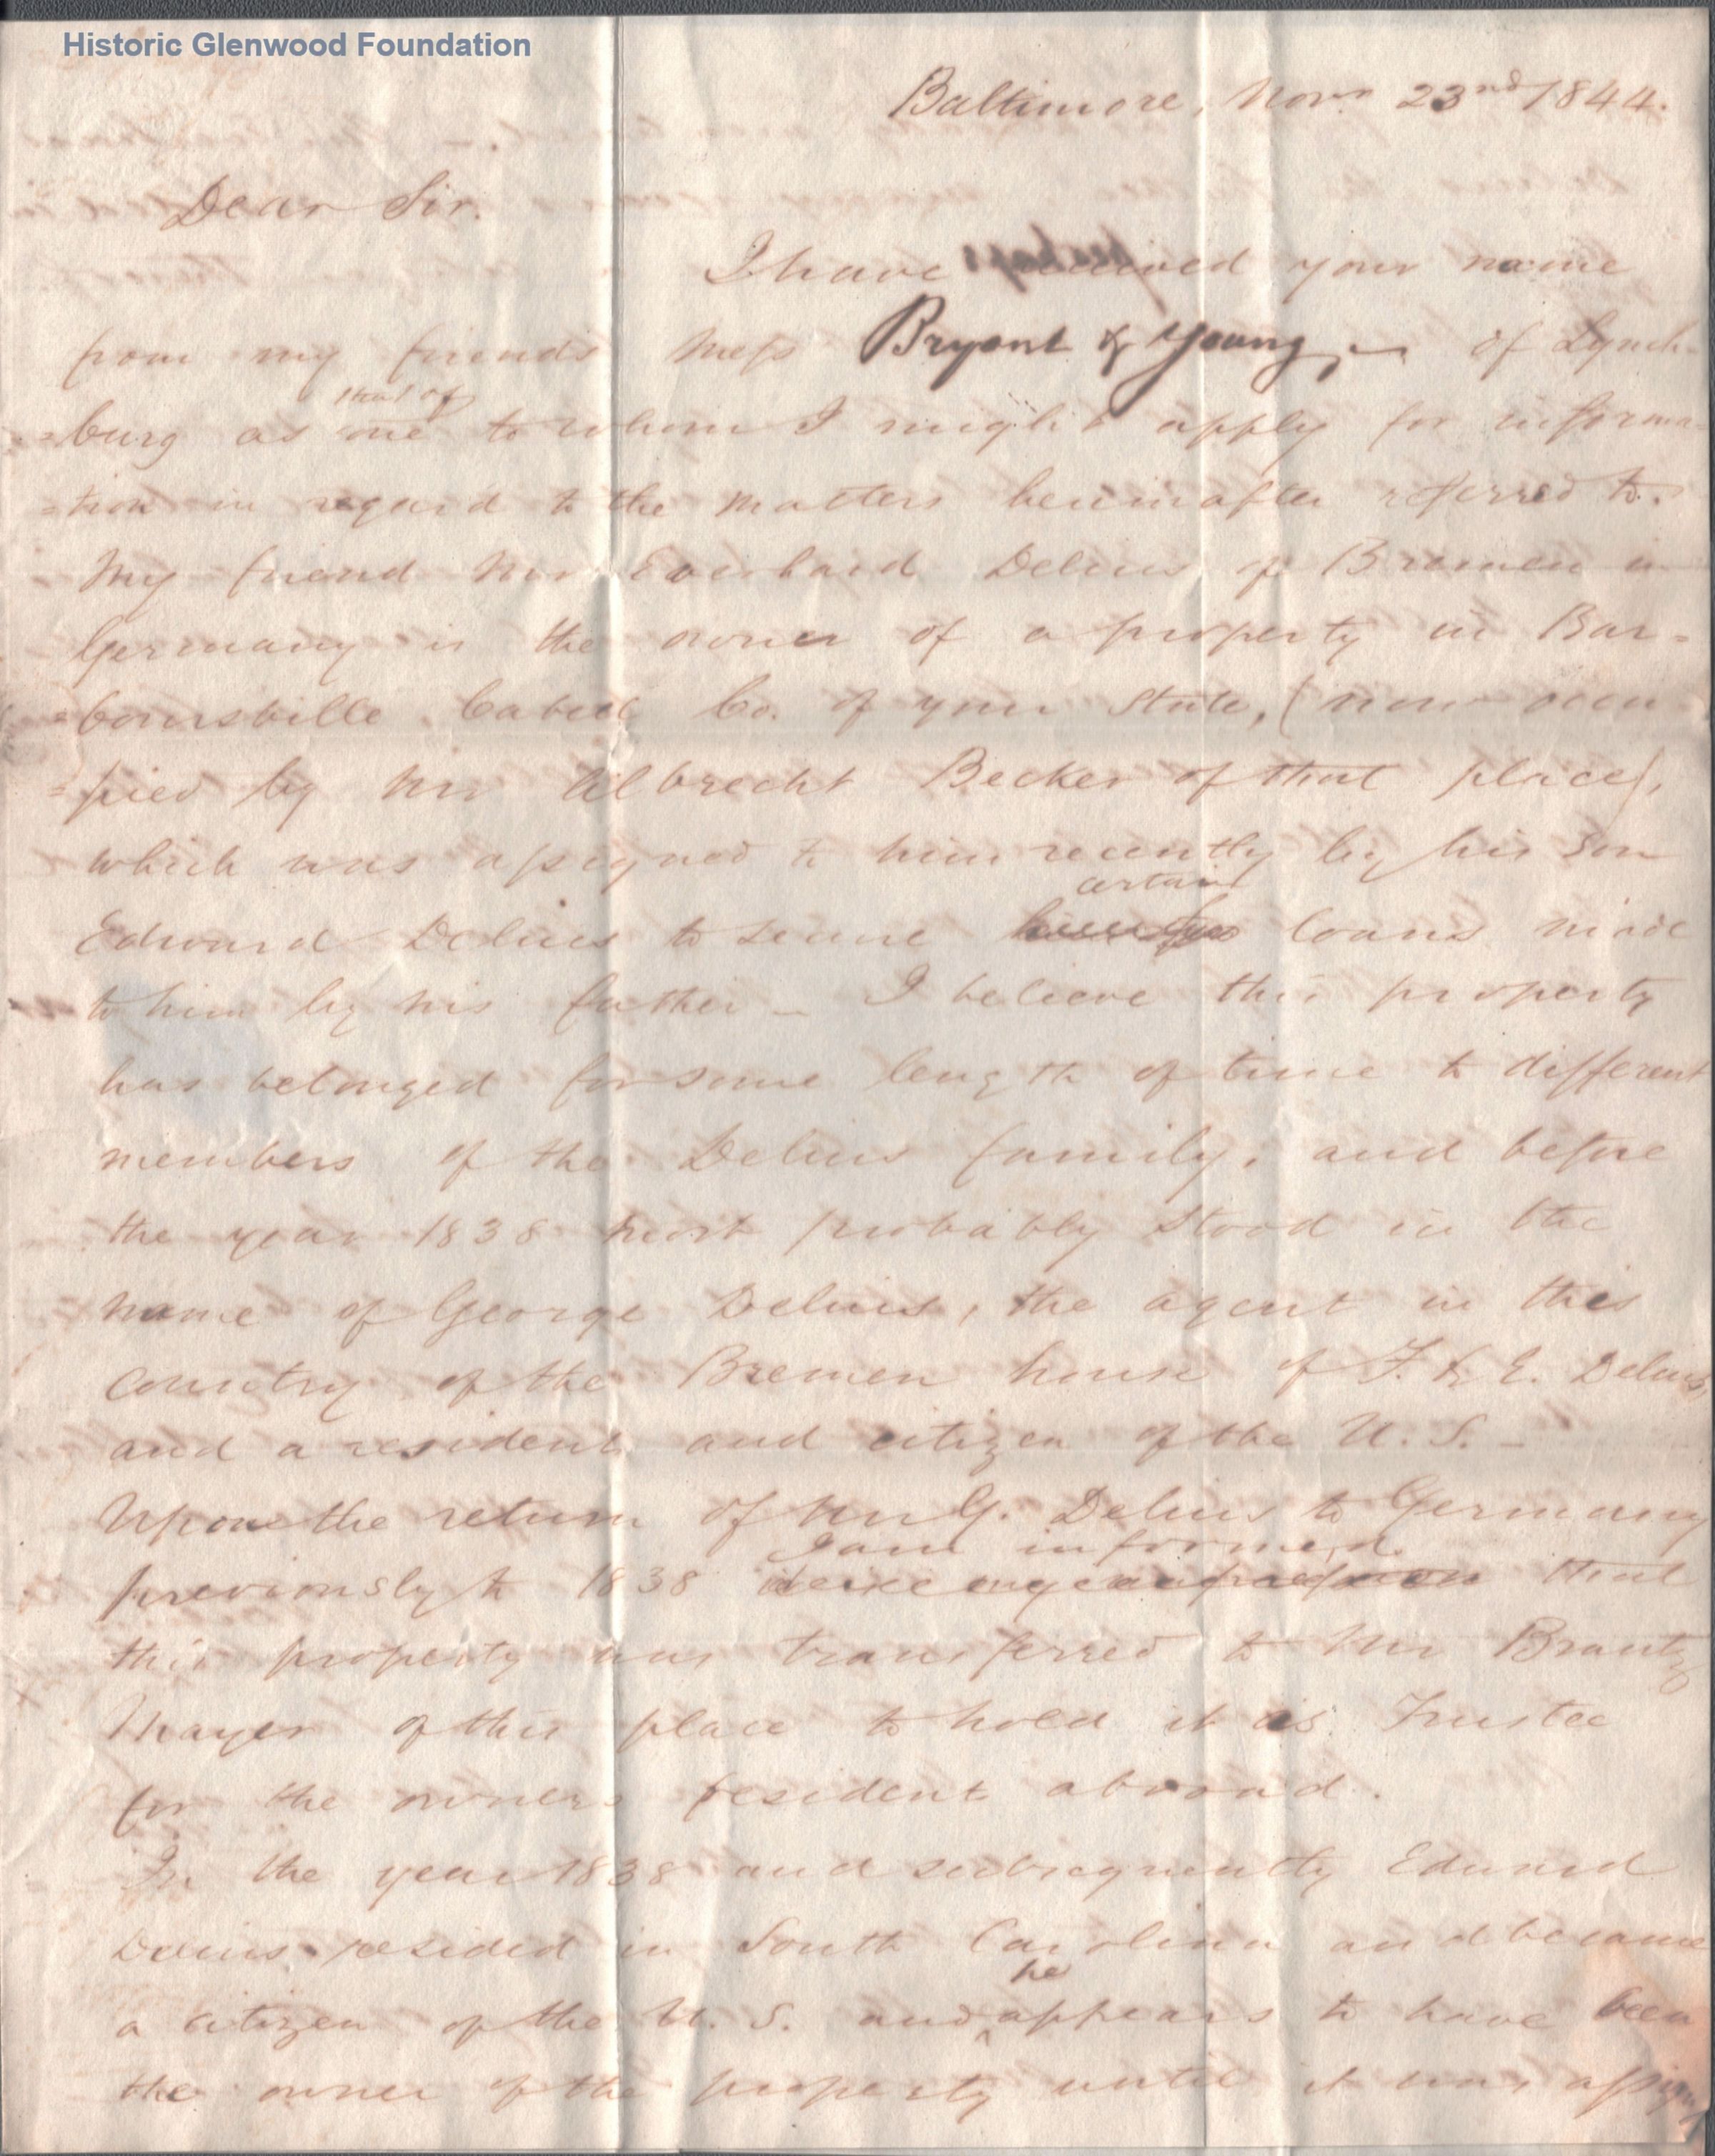 Historic Glenwood Foundation
Baltimore, Novr 23rd 1844.
Dear Sir.
I have received your name
from my friends Mess Bryant & Young, — of Lynch-
=burg as that of one to whom I might apply for informa=
=tion in regard to the matters hereinafter referred to.
My friend Mr Everhard Delius of Bremen in
Germany is the owner of a property in Bar=
=boursville Cabell Co. of your State, (now occu=
=pied by Mr Albrecht Becker of that place),
which was assigned to him recently by his son
Edward Delius to secure certain loans made
to him by his father — I believe this property
has belonged for some length of time to different
members of the Delius family, and before
the year 1838 most probably stood in the
name of George Delius, the agent in this
country of the Bremen house of F. & E. Delius,
and a resident and citizen of the U. S. —
Upon the return of Mr G. Delius to Germany
previously to 1838 I am informed that
this property was transferred to Mr Brantz
Mayer of this place to hold it as Trustee
for the owners resident abroad.
In the year 1838 and subsequently Edward
Delius resided in South Carolina and became
a citizen of the U. S. and he appears to have been
the owner of the property until it was assigned